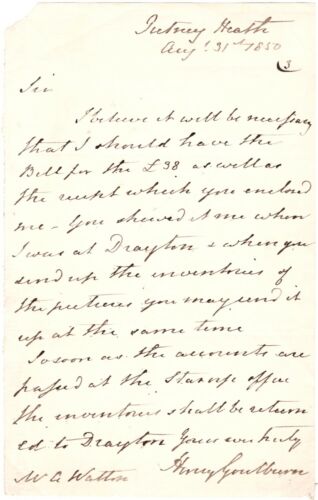 Putney Heath
Augt. 31st 1850
3
Sir
I believe it will be necessary
that I should have the
Bill for the £38 as well as
the receipt which you enclosed
me - You shewed it me when
I was at Drayton & when you
send up the inventories of
the pictures you may send it
up at the same time
So soon as the accounts are
passed at the Stamp office
the inventories shall be return
ed to Drayton Yours
Mr G Watton Henry Goulburn